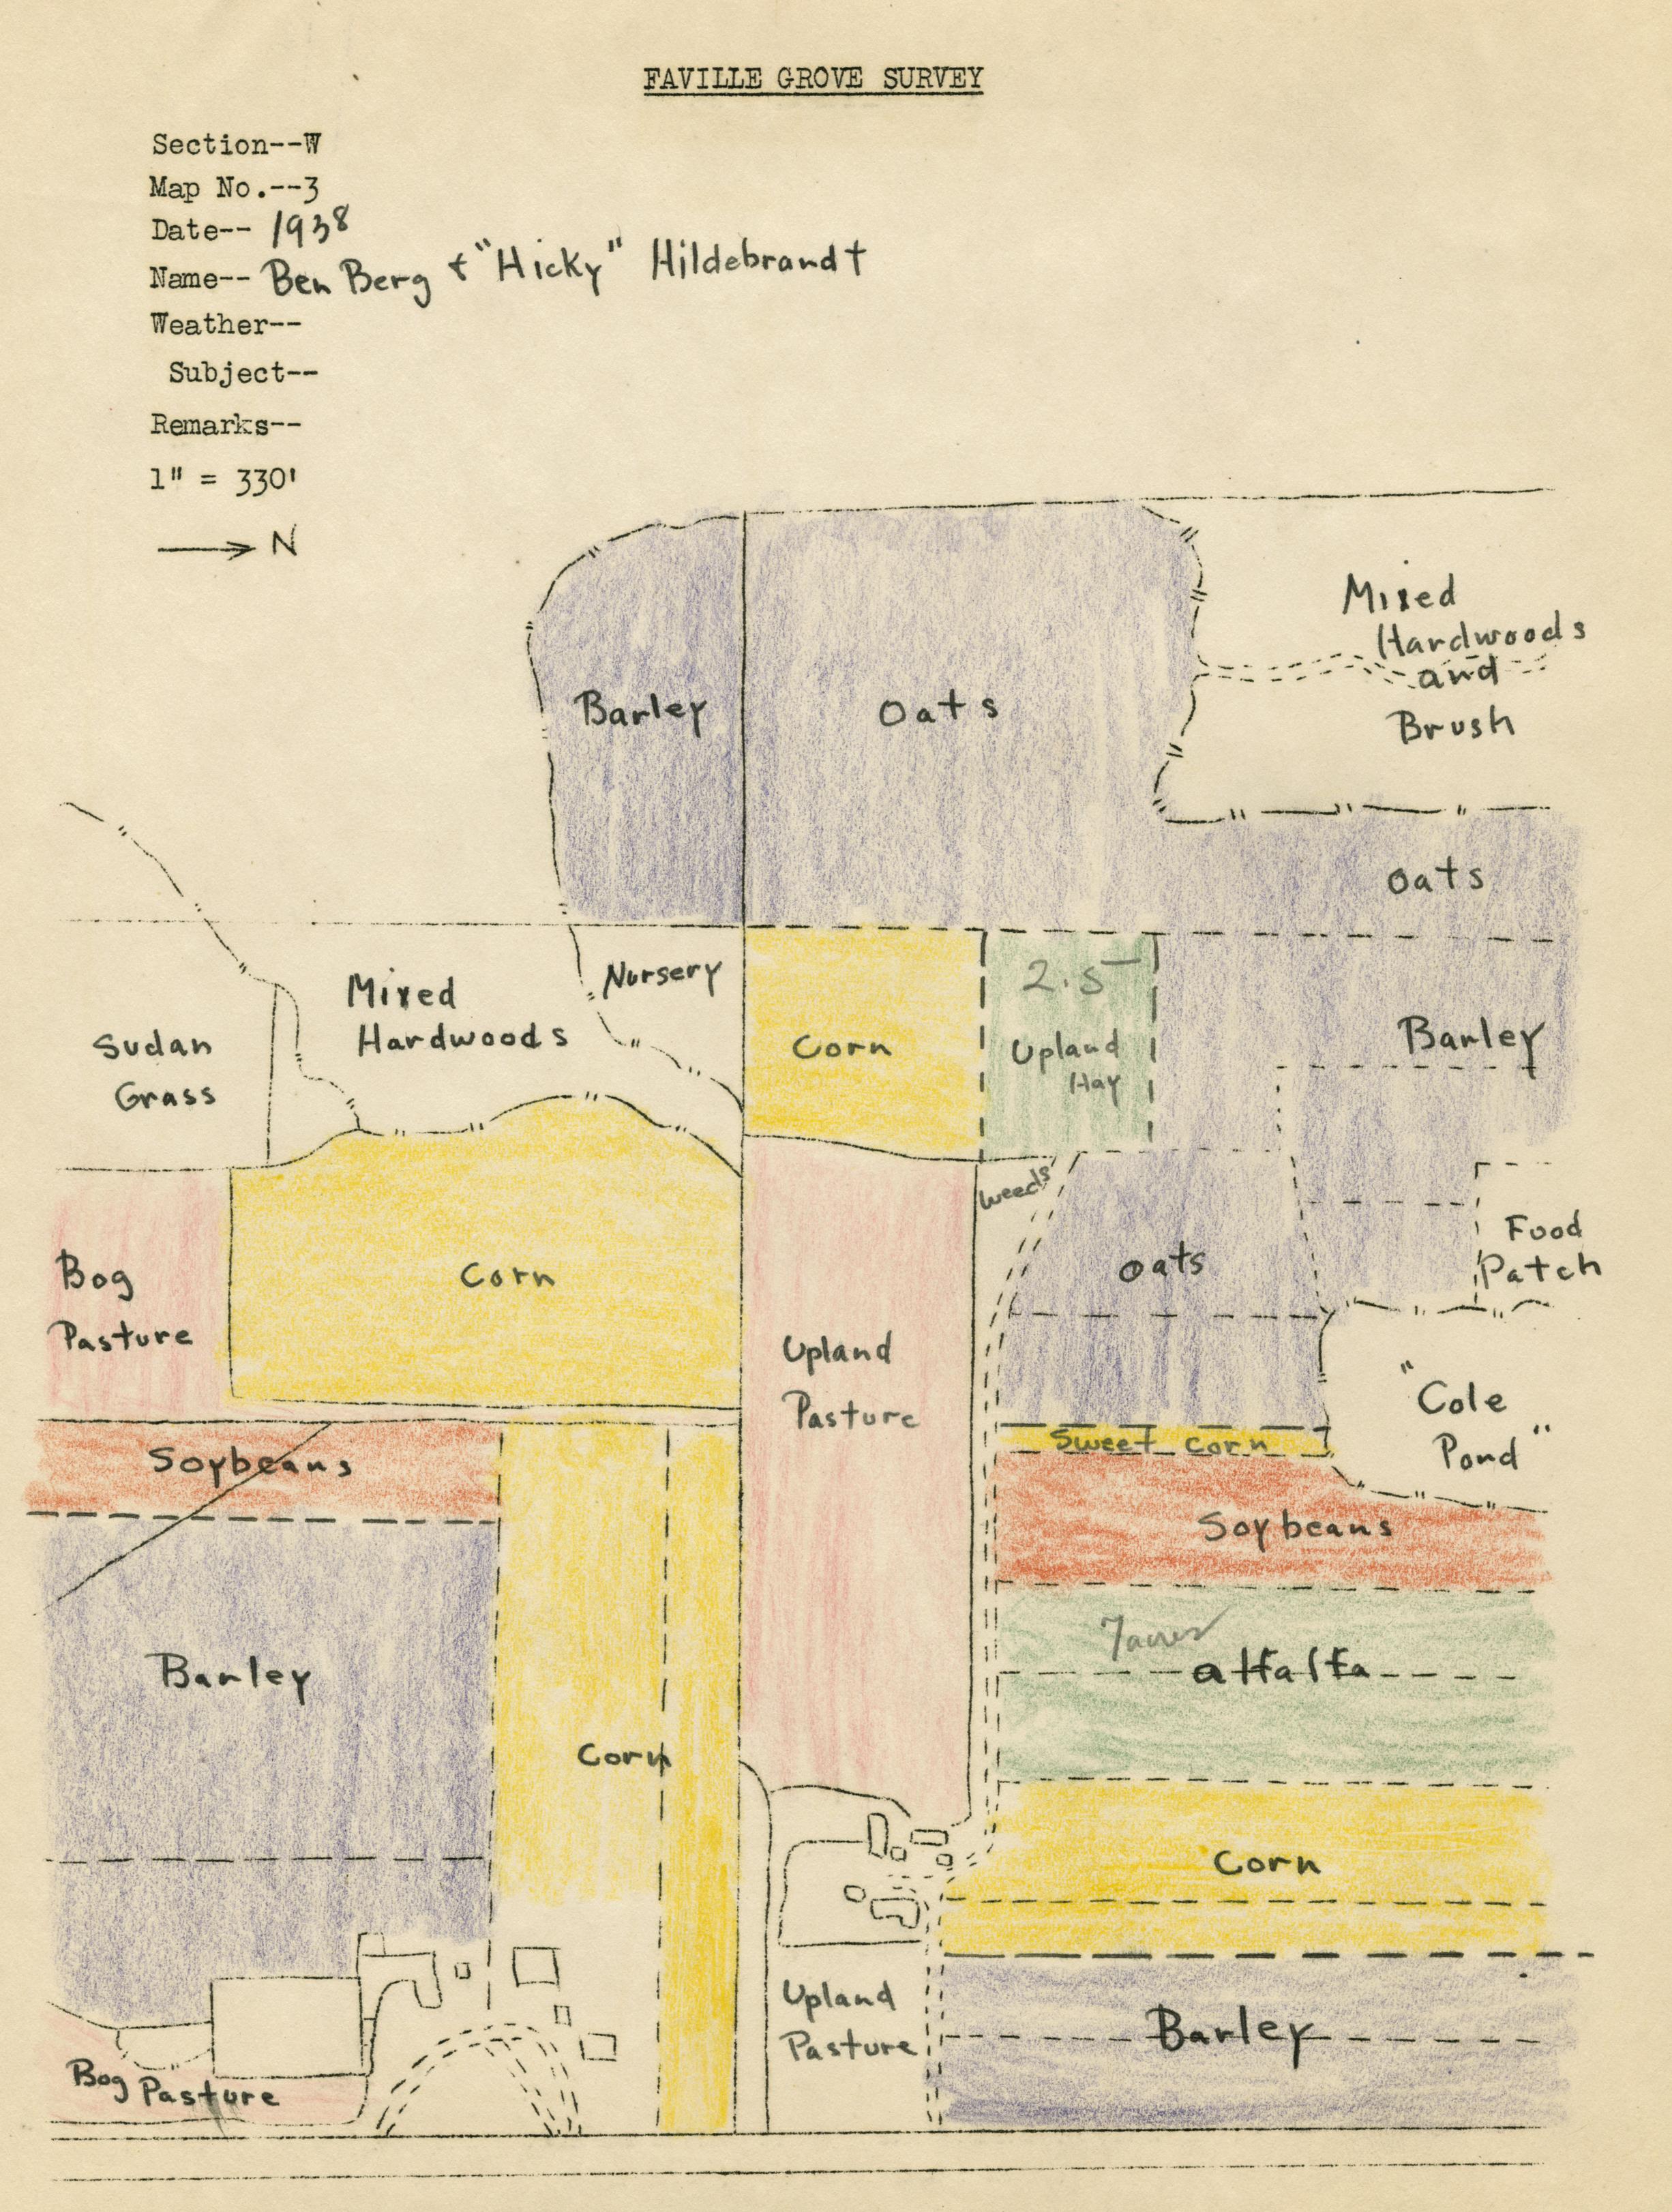 FAVILLE GROVE SURVEY
Section--W
Map No.--3
Date-- 1938
Name-- Ben Berg & "Hicky" Hildebrandt
Weather--
Subject--
Remarks--
1" = 330'
N
Mixed
Hardwoods
and
Brush
Barley
Oats
Oats
Nursery
2.5
Mixed
Hardwoods
Corn
Upland
Hay
Barley
Sudan
Grass
Weeds
Food
Patch
Bog
Pasture
Corn
Oats
Upland
Pasture
"Cole
Pond"
Sweet Corn
Soybeans
Soybeans
7 acres
alfalfa
Barley
Corn
Corn
Upland
Pasture
Barley
Bog Pasture